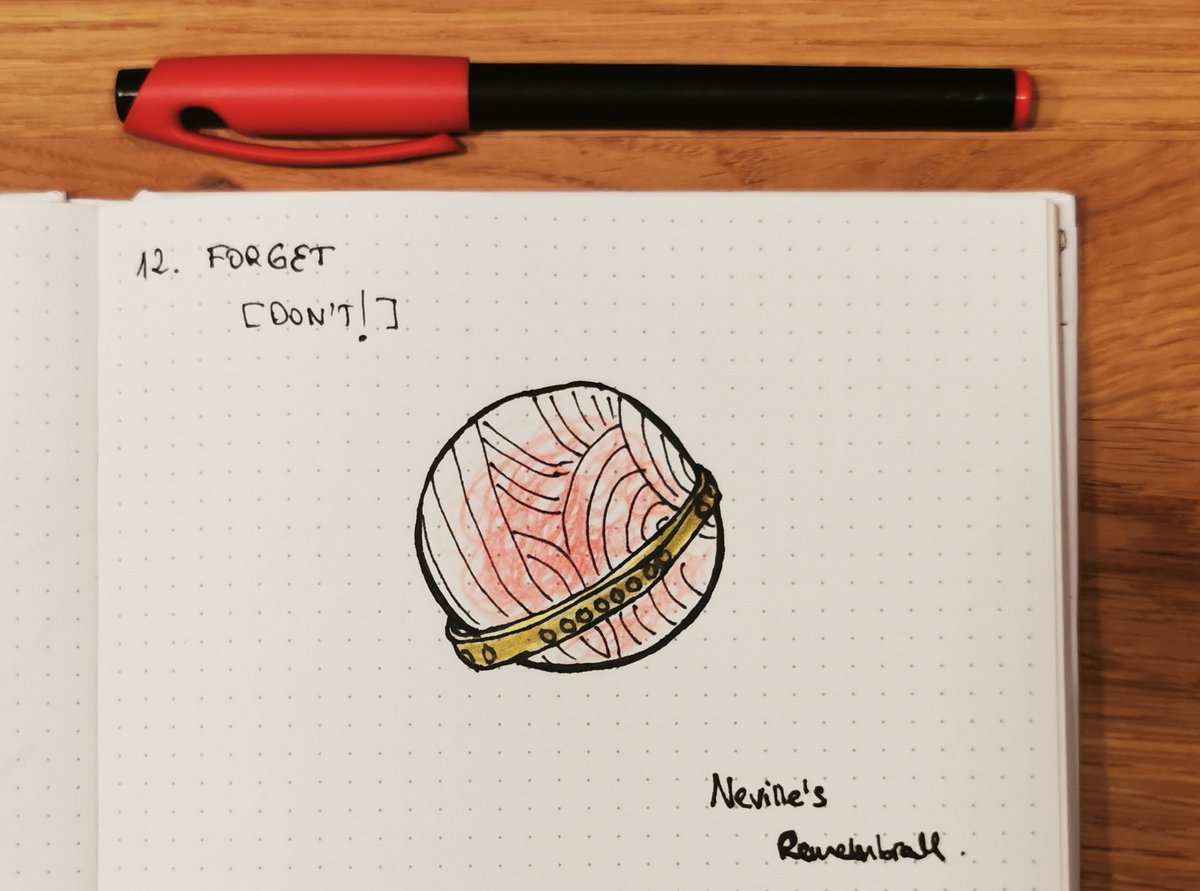 12. FORGET
[DON'T!]
Neville's
Remembrall.